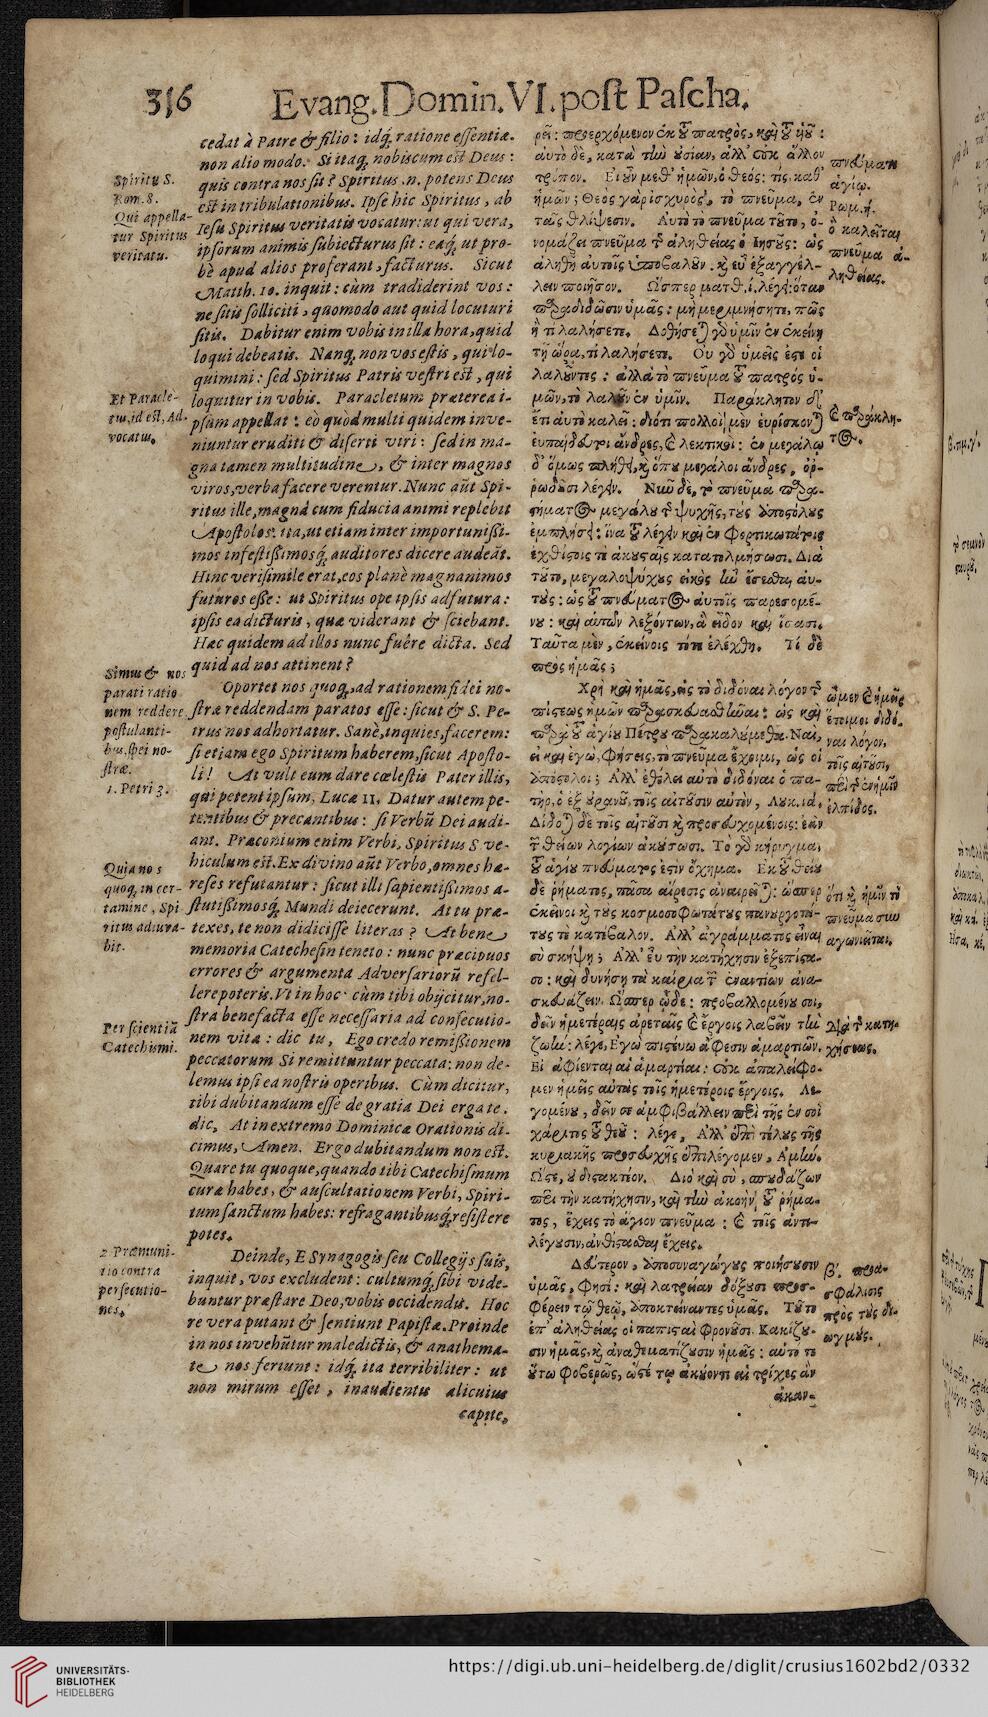 316 Evang. Domin. VI. post Pascha.
cedat à Patre & filio: idq́; ratione essentiæ.
non alio modo. Si itaq; nobiscum est Deus:
quis contra nos sit? Spiritus .n. potens Deus
est in tribulationibus. Ipse hic Spiritus, ab
Iesu Spiritus veritatis vocatur: ut qui vera,
ipsorum animis subiecturus sit: eaq́;, ut pro-
bè apud alios proferant, facturus. Sicut
Matth. 10. inquit: cùm tradiderint vos:
ne sitis solliciti, quomodo aut quid locuturi
sitis. Dabitur enim vobis in illa hora, quid
loqui debeatis. Nanq; non vos estis, qui lo-
quimini: sed Spiritus Patris vestri est, qui
loquitur in vobis. Paracletum præterea i-
psum appellat: eò quòd multi quidem inve-
niuntur eruditi & diserti viri: sed in ma-
gna tamen multitudine, & inter magnos
viros, verba facere verentur. Nunc aūt Spi-
ritus ille, magnâ cum fiducia animi replebit
Apostolos: ita, ut etiam inter importunißi-
mos infestißimosq́; auditores dicere audeāt.
Hinc verisimile erat, eos planè magnanimos
futuros esse: ut Spiritus ope ipsis adfutura:
ipsis ea dicturis, quæ viderant & sciebant.
Hæc quidem ad illos nunc fuêre dicta. Sed
quid ad nos attinent?
Oportet nos quoq;, ad rationem fidei no-
stræ reddendam paratos esse: sicut & S. Pe-
trus nos adhortatur. Sanè, inquies, facerem:
si etiam ego Spiritum haberem, sicut Aposto-
li! At vult eum dare cœlestis Pater illis,
qui petent ipsum, Lucæ 11. Datur autem pe-
tentibus & precantibus: si Verbū Dei audi-
ant. Præconium enim Verbi, Spiritus S. ve-
hiculum est. Ex divino aūt Verbo, omnes hæ-
reses refutantur: sicut illi sapientißimos a-
stutißimosq́; Mundi deiecerunt. At tu præ-
texes, te non didicisse literas? At bene
memoria Catechesin teneto: nunc præcipuos
errores & argumenta Adversariorū refel-
lere poteris. Vt in hoc: cùm tibi obijcitur, no-
stra benefacta esse necessaria ad consecutio-
nem vitæ: dic tu, Ego credo remißionem
peccatorum. Si remittuntur peccata: non de-
lemus ipsi ea nostris operibus. Cùm dicitur,
tibi dubitandum esse de gratia Dei erga te.
dic, At in extremo Dominicæ Orationis di-
cimus, Amen. Ergo dubitandum non est.
Quare tu quoque, quando tibi Catechismum
curæ habes, & auscultationem Verbi, Spiri-
tum sanctum habes: refragantibusq́; resistere
potes.
Deinde, E Synagogis seu Collegijs suis,
inquit, vos excludent: cultumq́; sibi vide-
buntur præstare Deo, vobis occidendis. Hoc
re vera putant & sentiunt Papistæ. Proinde
in nos invehūtur maledictis, & anathema-
te nos feriunt: idq́; ita terribiliter: ut
non mirum esset, inaudientis alicuius
capite,
Spiritu S.
Rom. 8.
Qui appella-
tur Spiritus
veritatis.
Et Paracle-
tus, id est, Ad-
vocatus.
Simus & nos
parati ratio
nem reddere
postulanti-
bus, spei no-
stræ.
1. Petri 3.
Quia nos
quoq;, in cer-
tamine, Spi
ritus adiura-
bit.
Per scientiā
Catechismi.
2. Præmuni-
tio contra
persecutio-
nes.
ρεῖ: προερχόμενον ἐκ τοῦ πατρὸς, καὶ τοῦ ὑοῦ:
αὐτὸ δὲ, κατὰ τὴν οὐσίαν, ἀλλ' οὐκ ἄλλον
τρόπον. Εἰ οὖν μεθ' ἡμῶν, ὁ θεός: τίς, καθ'
ἡμῶν; Θεὸς γὰρ ἰσχυρὸς, τὸ πνεῦμα, ἐν
ταῖς θλίψεσιν. Αὐτὸ τὸ πνεῦμα τοῦτο, ὀ-
νομάζει πνεῦμα τῆς ἀληθείας ὁ Ἰησοῦς: ὡς
ἀληθῆ αὐτοῖς ὑποβαλοῦν. καὶ εὖ ἐξαγγέλ-
λειν ποιῆσον. Ὥσπερ ματθ. ί. λέγει: ὅταν
παραδιδῶσιν ὑμᾶς: μὴ μεριμνήσητε, πῶς
ἢ τί λαλήσετε. Δοθήσεται γὰρ ὑμῖν ἐν ἐκείνῃ
τῇ ὥρα, τί λαλήσετε. Οὐ γὰρ ὑμεῖς ἐστε οἱ
λαλοῦντες: ἀλλὰ τὸ πνεῦμα τοῦ πατρός ὑ-
μῶν, τὸ λαλοῦν ἐν ὑμῖν. Παράκλητον δὲ
ἔτι αὐτὸ καλεῖ: διότι πολλοὶ μὲν εὑρίσκονται
εὐπαίδευτοι ἄνδρες, καὶ λεκτικοί: ἐν μεγάλῳ
δ' ὅμως πλήθει, καὶ ὅπου μεγάλοι ἄνδρες, ὀρ-
ρωδοῦσι λέγειν. Νῦν δὲ, τὸ πνεῦμα παρα-
στήματος μεγάλου τῆς ψυχῆς, τοὺς ἀποστόλους
ἐμπλήσει: ἵνα τοῦ λέγειν καὶ ἐν φορτικωτάτοις
ἐχθίστοις τε ἀκουσταῖς κατατολμήσωσι. Διὰ
τοῦτο, μεγαλοψύχους εἰκὸς ἦν ἔσεσθαι αὐ-
τούς: ὡς τοῦ πνεύματος αὐτοῖς παρεσομέ-
νου: καὶ αὐτῶν λεξόντων, ἃ εἶδον καὶ ἴσασι.
Ταῦτα μὲν, ἐκείνοις τότε ἐλέχθη. Τί δὲ
πρὸς ἡμᾶς;
Χρὴ καὶ ἡμᾶς, εἰς τὸ διδόναι λόγον τῆς
πίστεως ἡμῶν παρασκευασθῆναι: ὡς καὶ
παρὰ τοῦ ἁγίου Πέτρου παρακαλούμεθα. Ναὶ,
εἰ καὶ ἐγὼ, φήσεις, τὸ πνεῦμα ἔχοιμι, ὡς οἱ
ἀπόστολοι; Ἀλλ' ἐθέλει αὐτὸ διδόναι ὁ πα-
τὴρ, ὁ ἐξ οὐρανοῦ, τοῖς αἰτοῦσιν αὐτὸν, Λουκ. ιά.
Δίδοται δὲ τοῖς αἰτοῦσι καὶ προσευχομένοις: ἐὰν
τῶν θείων λογίων ἀκούσωσι. Τὸ γὰρ κήρυγμα,
τοῦ ἁγίου πνεύματός ἐστιν ὄχημα. Ἐκ τοῦ θείου
δὲ ῥήματος, πᾶσα αἵρεσις ἀναιρεῖται: ὥσπερ
ἐκεῖνοι καὶ τοὺς κοσμοσοφωτάτους πανουργοτά-
τους τε κατέβαλον. Ἀλλ' ἀγράμματος εἶναι
σὺ σκήψῃ; Ἀλλ' εὖ τὴν κατήχησιν ἐξεπίστα-
σο: καὶ δυνήσῃ τὰ καίρια τῶν ἐναντίων ἀνα-
σκευάζειν. Ὥσπερ ὧδε: προβαλλομένου σοι,
δεῖν ἡμετέραις ἀρεταῖς καὶ ἔργοις λαβεῖν τὴν
ζωήν: λέγε, Ἐγὼ πιστεύω ἄφεσιν ἁμαρτιῶν.
Εἰ ἀφίενται αἱ ἁμαρτίαι: οὐκ ἀπαλείφο-
μεν ἡμεῖς αὐτὰς τοῖς ἡμετέροις ἔργοις. Λε-
γομένου, δεῖν σε ἀμφιβάλλειν περὶ τῆς ἐν σοὶ
χάριτος τοῦ θεοῦ: λέγε, Ἀλλ' ἐπὶ τέλους τῆς
κυριακῆς προσευχῆς ἐπιλέγομεν, Ἀμήν.
Ὥστε, οὐ διστακτέον. Διὸ καὶ σὺ, σπουδάζων
περὶ τὴν κατήχησιν, καὶ τὴν ἀκοὴν τοῦ ῥήμα-
τος, ἔχεις τὸ ἅγιον πνεῦμα: καὶ τοῖς ἀντι-
λέγουσιν, ἀνθίστασθαι ἔχεις.
Δεύτερον, ἀποσυναγώγους ποιήσουσιν
ὑμᾶς, φησί: καὶ λατρείαν δόξουσι προσ-
φέρειν τῷ θεῷ, ἀποκτείναντες ὑμᾶς. Τοῦτο
ἐπ' ἀληθείας οἱ παπισταὶ φρονοῦσι. Κακίζου-
σιν ἡμᾶς, καὶ ἀναθεματίζουσιν ἡμᾶς: αὐτὸ τε
οὕτω φοβερῶς, ὥστε τῷ ἀκούοντι αἱ τρίχες ἂν
ἀκαν-
πνεύματι
ἁγίῳ.
Ρωμ. ή.
ὃ καλεῖται
πνεῦμα ἀ-
ληθείας.
καὶ παράκλη-
τος.
ὦμεν καὶ ἡμεῖς
ἕτοιμοι διδό-
ναι λόγον,
τοῖς αἰτοῦσι,
περὶ τῆς ἐν ἡμῖν
ἐλπίδος.
ὅτι καὶ ἡμῖν τὸ
πνεῦμα συν
αγωνιεῖται.
Διὰ τῆς κατη-
χήσεως.
β΄. προα-
σφάλισις
πρὸς τοὺς δι-
ωγμούς.
UNIVERSITÄTS-
BIBLIOTHEK
HEIDELBERG
https://digi.ub.uni-heidelberg.de/diglit/crusius1602bd2/0332